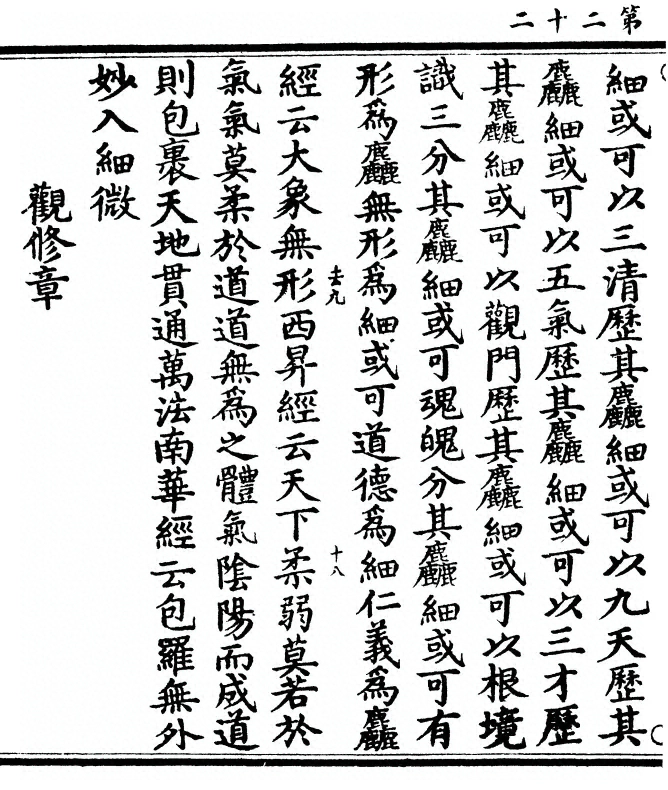 第二十二
細或可以三清歷其麤細或可以九天歷其
麤細或可以五氣歷其麤細或可以三才歷
其麤細或可以觀門歷其麤細或可以根境
識三分其麤細或可魂魄分其麤細或可有
形爲麤無形爲細或可道德爲細仁義爲麤
去九
十八
經云大象無形西昇經云天下柔弱莫若於
氣氣莫柔於道道無爲之體氣陰陽而成道
則包裹天地貫通萬法南華經云包羅無外
妙入細微
觀修章